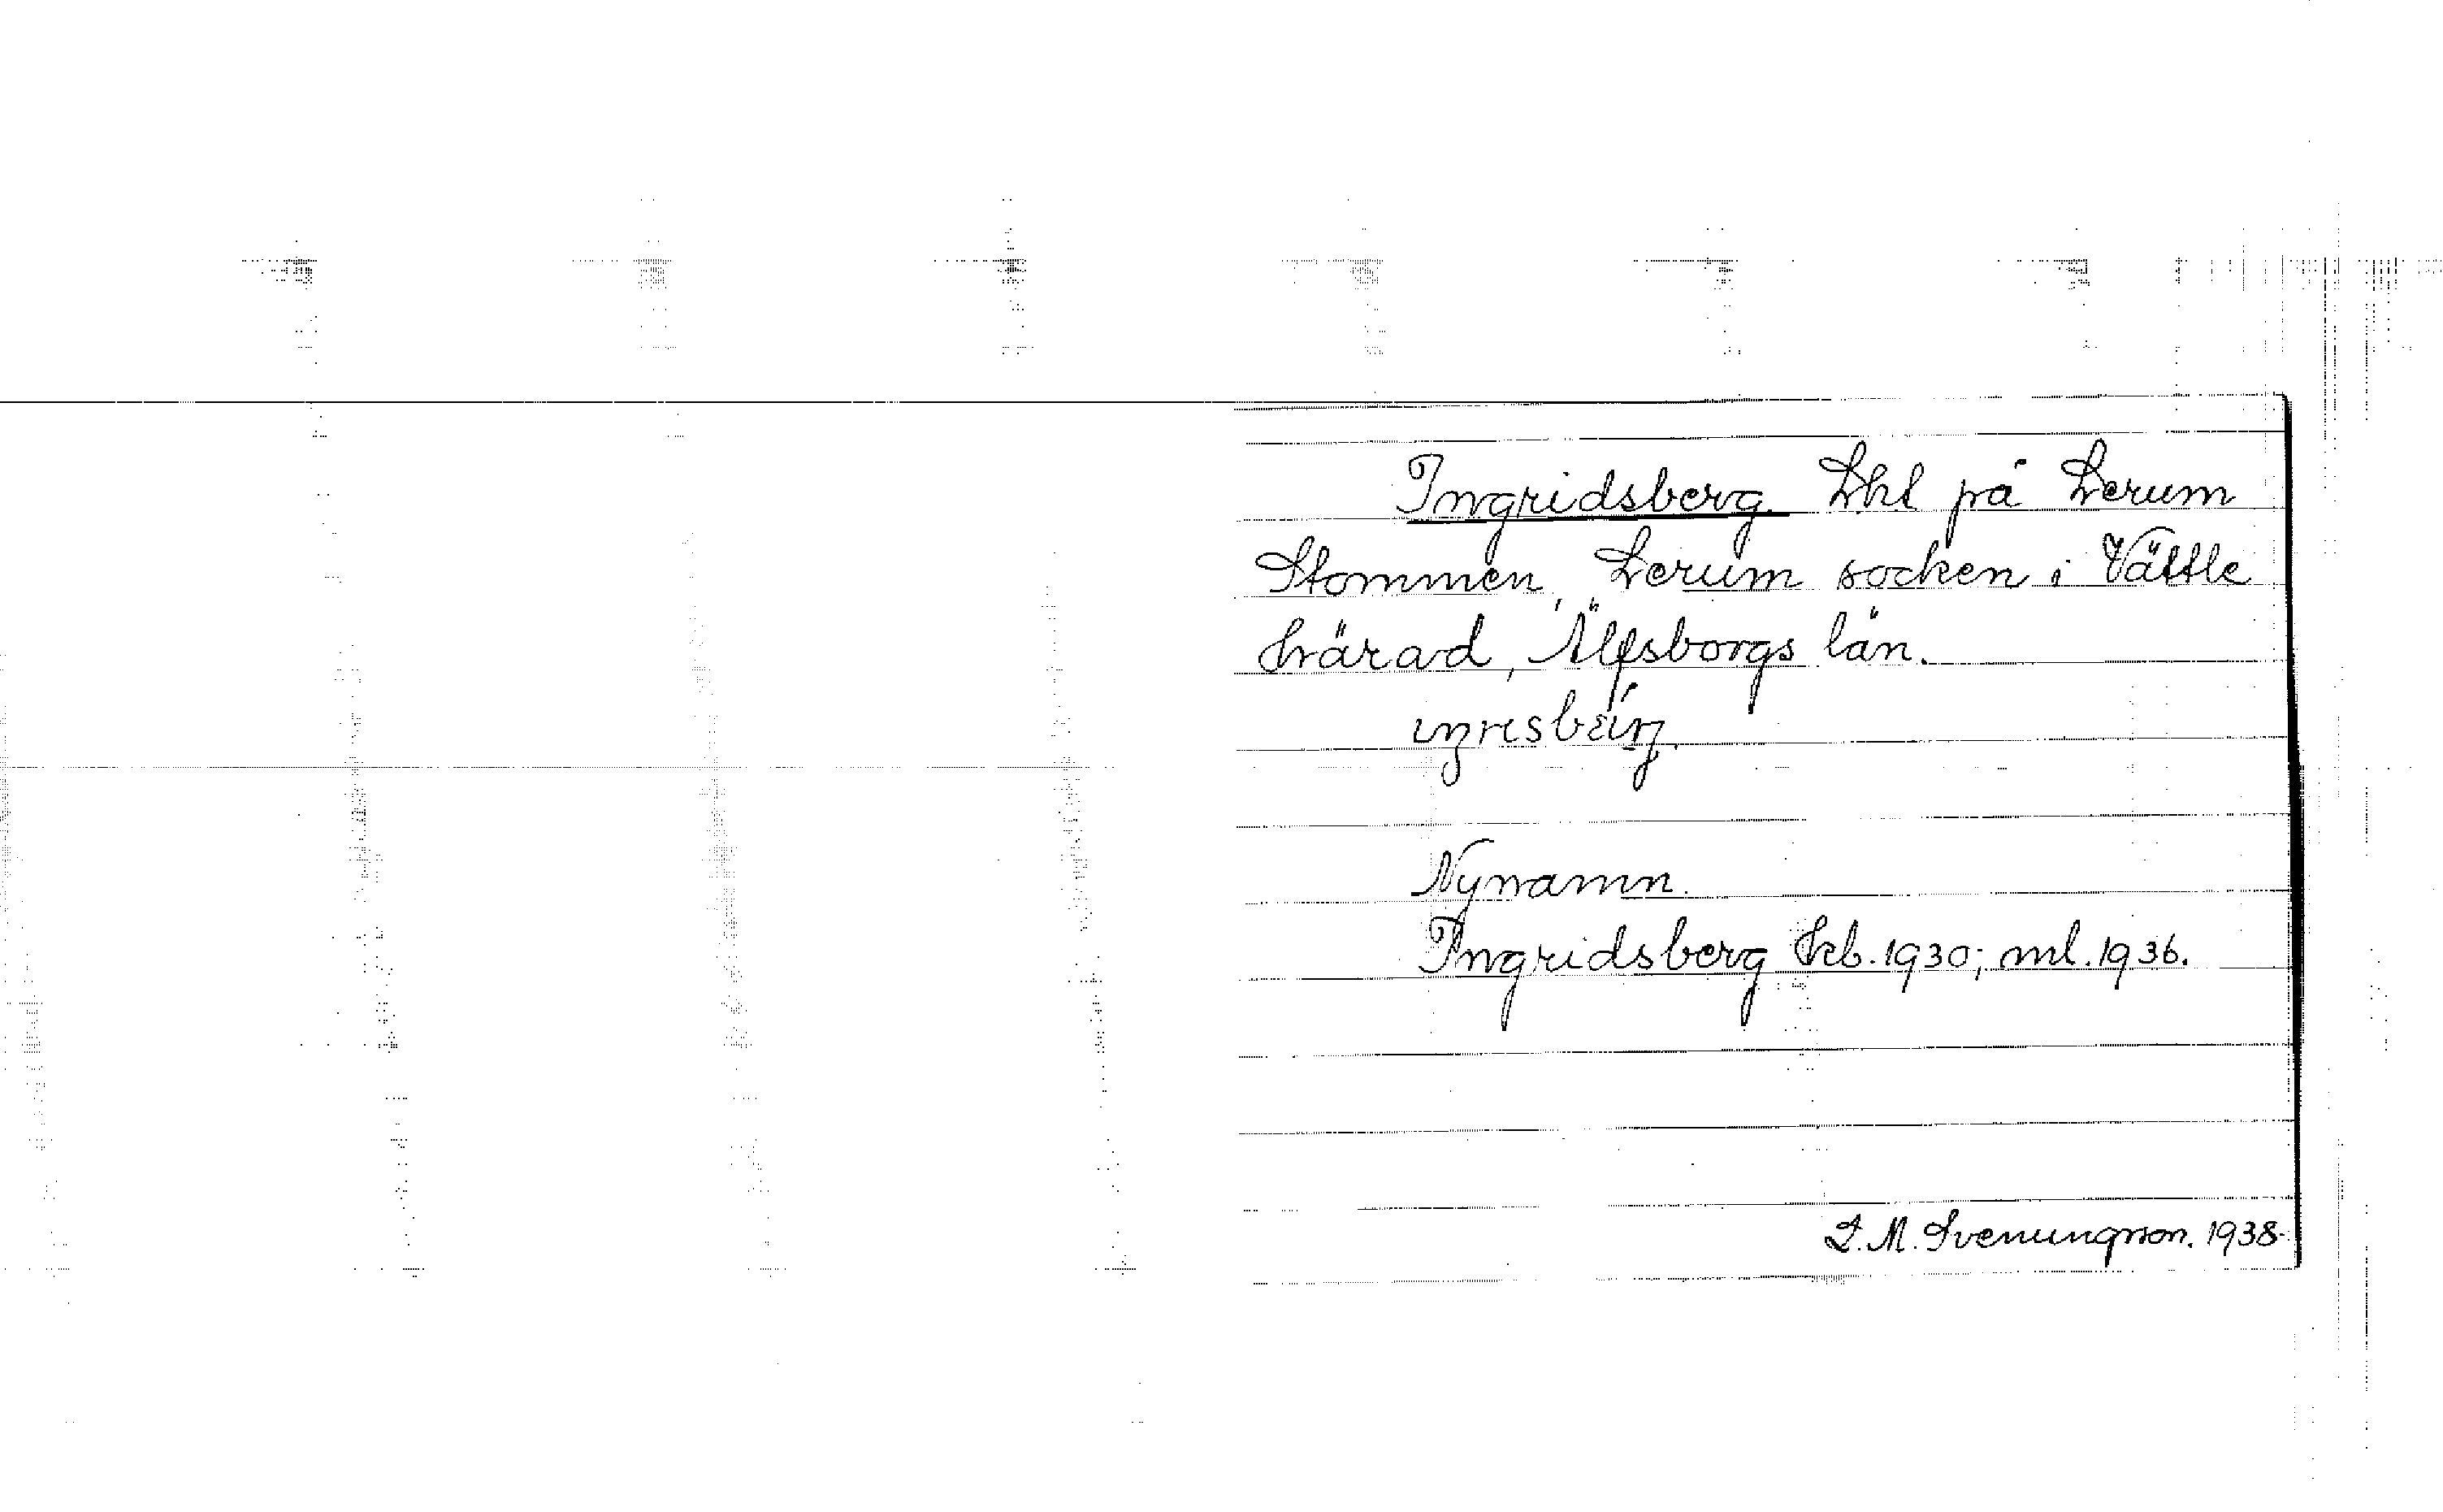 Ingridsberg. Lht på Lerum
Stommen, Lerum socken i Vättle
härad, Älfsborgs län.
Nynamn.
Ingridsberg kb. 1930; ml. 1936.
L. M. Svenungsson. 1938.